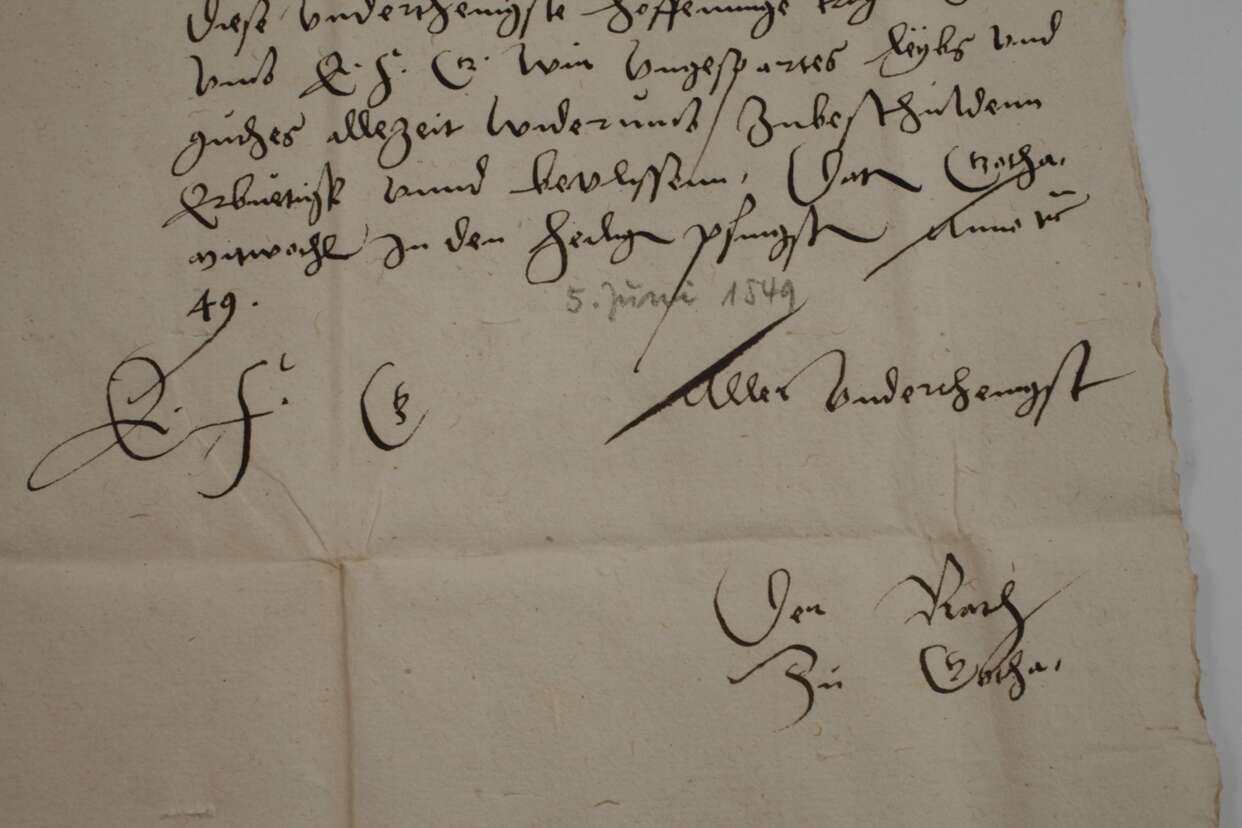 Diese vnderthenigste hoffenunge
vmb E. F. G. wir vngespartes Leybs vnd
guthes allezeit widerumb zubeschuldenn
Erbuetigk vnnd bevlissenn, Dat Gotha,
mitwochs In den heilign pfingstn Anno &c
49.
5. Juni 1549
E. F. G
Aller vnderthenigst
Der Rath
Zu Gotha,